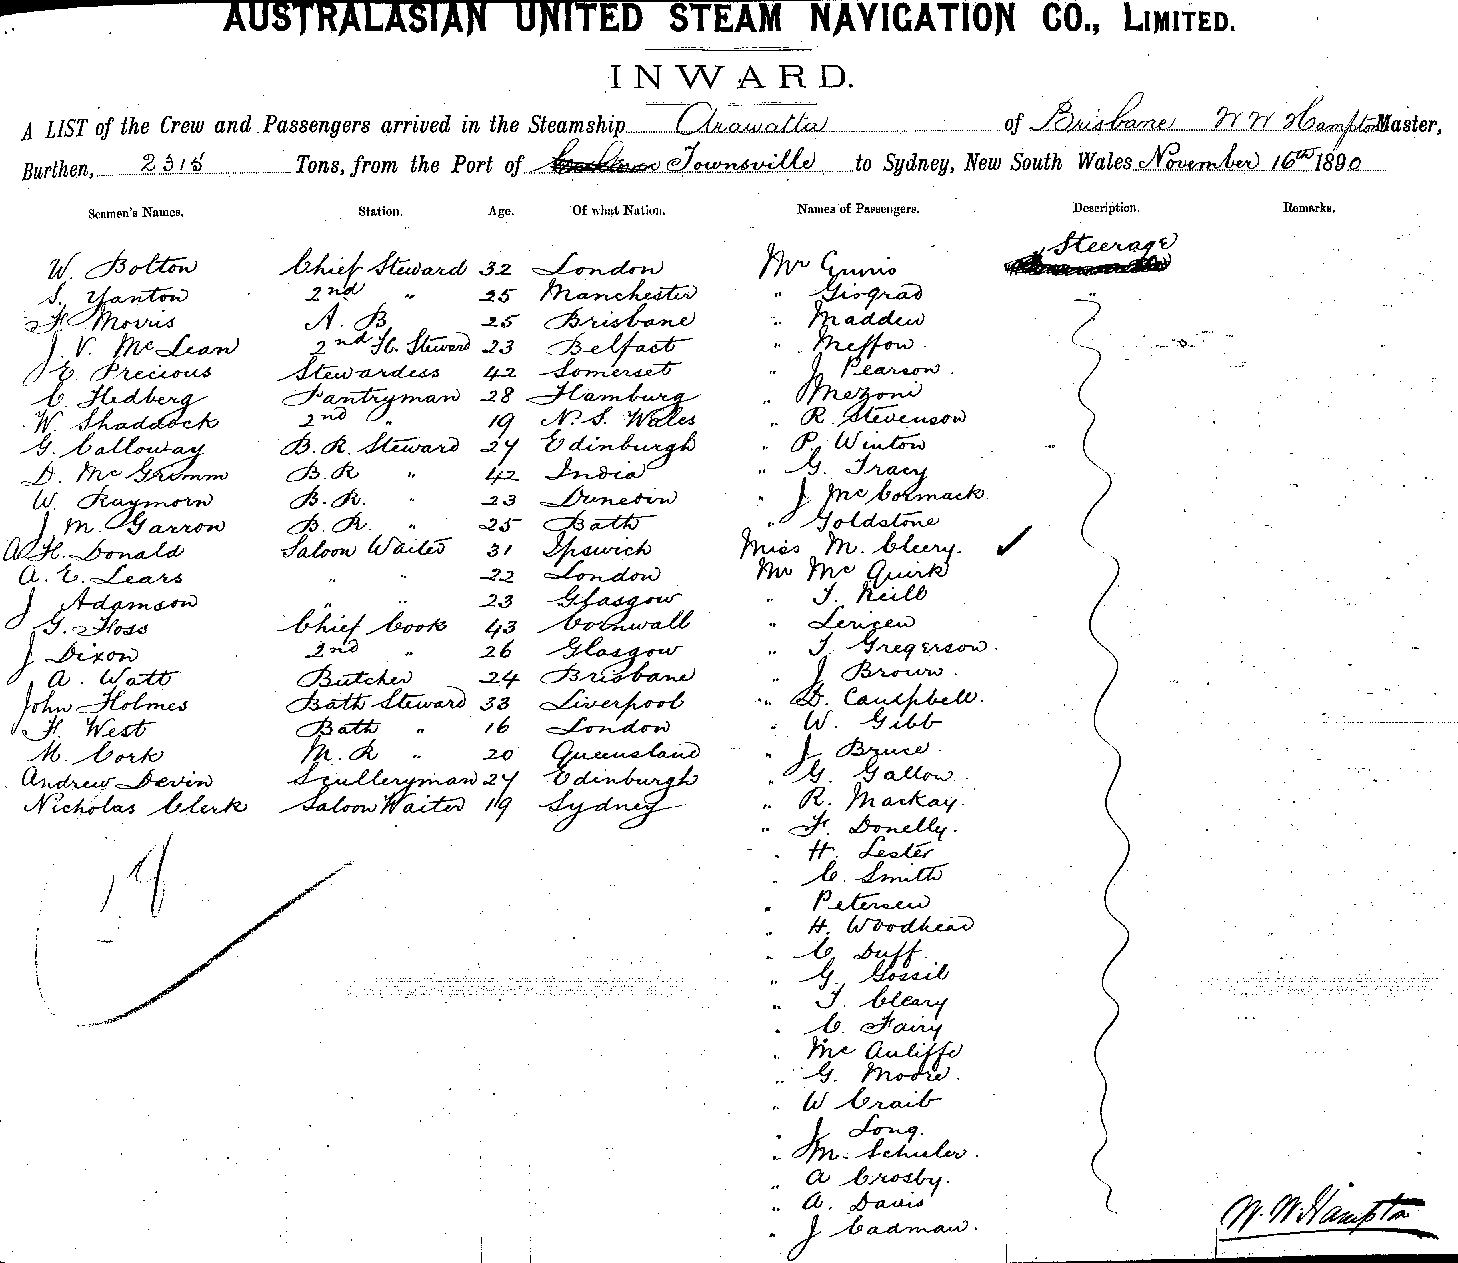 AUSTRALASIAN UNITED STEAM NAVIGATION CO., LIMITED.
INWARD.
A LIST of the Crew and Passengers arrived in the Steamship Arawatta of Brisbane W W Hampton Master,
Burthen, 2315 Tons, from the Port of Townsville to Sydney, New South Wales November 16th 1890
Seamen's Names. Station. Age. Of what Nation. Names of Passengers. Description. Remarks.
Steerage
W. Bolton Chief Steward 32 London Mr
S. Yanton 2nd " 25 Manchester " "
F. Morris A. B 25 Brisbane " Madden
J. V. McLean 2nd Steward 23 Belfast "
E. Precious Stewardess 42 Somerset " J Pearson.
C. Hedberg Pantryman 28 Hamburg " Mezoni
W. Shaddock 2nd " 19 N. S. Wales " R. Stevenson
G. Calloway B. R. Steward 27 Edinburgh " P. Winton
D. McGrimm B. R " 42 India " G. Tracy
W. B. R. " 23 Dunedin " J McCormack
J. M. Garron B. R. " 25 Bath " Goldstone
A H. Donald Saloon Waiter 31 Ipswich Miss M. Cleery.
A. E. Lears " " 22 London Mr McQuirk
J Adamson " " 23 Glasgow " T. Neill
G. Floss Chief Cook 43 Cornwall "
J Dixon 2nd " 26 Glasgow " T. Gregerson.
A. Watt Butcher 24 Brisbane " J Brown.
John Holmes Bath Steward 33 Liverpool " D. Campbell.
H. West Bath " 16 London " W. Gibb
M. Cork M. R " 20 Queensland " J Bruce.
Andrew Devin Sculleryman 27 Edinburgh " G. Gallow
Nicholas Clerk Saloon Waiter 19 Sydney " R. Mackay.
" F. Donelly.
" H. Lester
" C. Smith
" Petersen
" H. Woodhead
" C. Duff.
" G. Gossil
" T. Cleary
" C. Fairy
" McAuliffe
" G. Moore.
" W Craib
" J Long.
" M. Schuler.
" A Crosby.
" A. Davis
" J Cadman.
W. W. Hampton